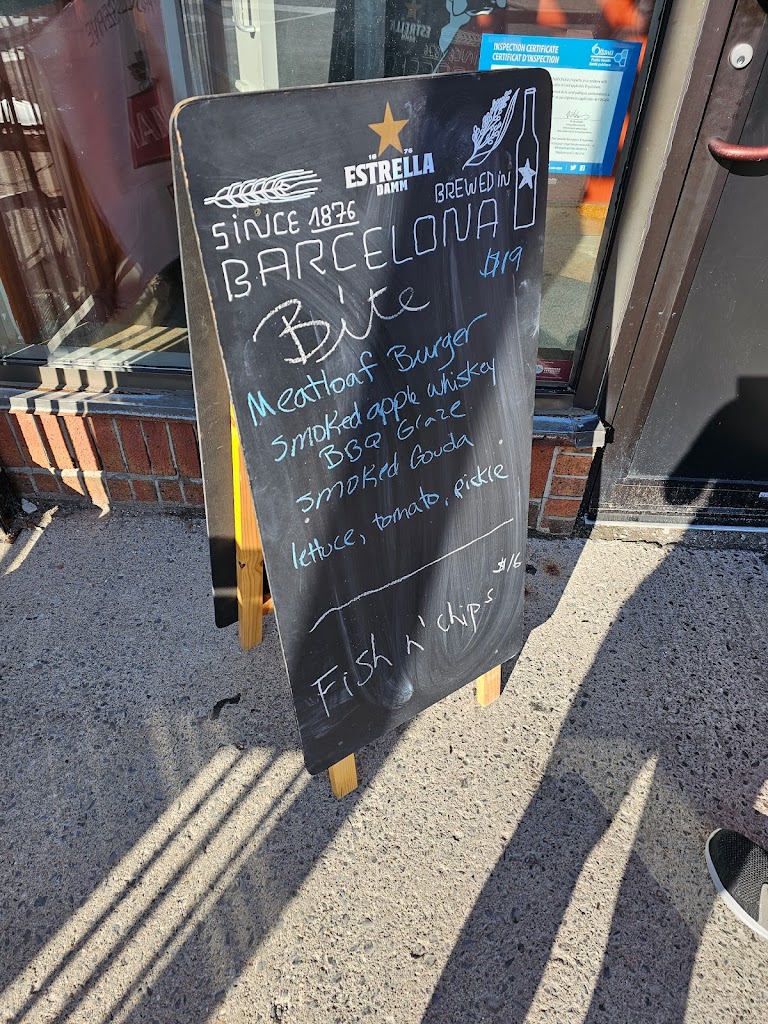 INSPECTION CERTIFICATE
CERTIFICAT D'INSPECTION
Ottawa
Public Health
Santé publique
18 76
ESTRELLA
DAMM
SINCE 1876
BREWED IN
BARCELONA
$19
Bite
Meatloaf Burger
smoked apple whiskey
BBQ Glaze
smoked Gouda
lettuce, tomato, pickle
$16
Fish n' chips